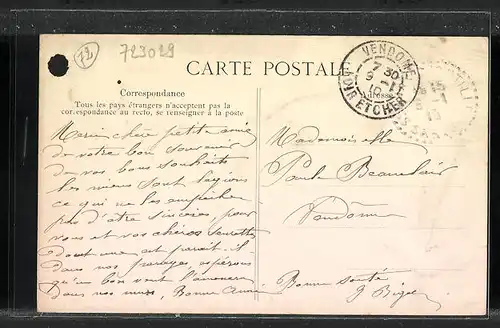 72
723029
CARTE POSTALE
Correspondance
Tous les pays étrangers n'acceptent pas la
correspondance au recto, se renseigner à la poste
Adresse
VENDOME
7 30
9 - 11
10
LOIR ET CHER
Merci chère petite amie
de votre bon souvenir
de vos bons souhaits
les miens sont
ce qui ne les empêche
pas d'être sincères pour
vous et vos chères
dont une est paraît-il
dans nos parages espérons
qu'un bon vent l'amènera
dans nos murs, Bonne Année
Mademoiselle
Paule Beauclair
Vendôme
Bonne santé